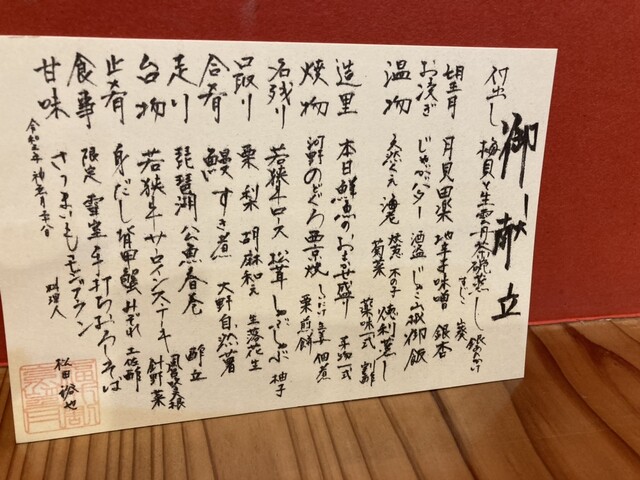 御献立
付出し 梅貝と生雲丹茶碗蒸し 銀あん
すじこ 葵
朝月 月見田楽 地辛子味噌 銀杏
お凌ぎ じゃがバター 酒盗 じゃこ 御飯
温物 天然くえ 海老 焼葱 木の子 焼利蒸し
菊菜 薬味一式 割酢
造里 本日鮮魚のおまかせ盛り 手物一式
焼物 河野のどぐろ西京焼 佃煮
栗煎餅
名残り 若狭牛ロース 松茸 しゃぶしゃぶ 柚子
口取り 栗 梨 胡麻和え 生落花生
合肴 鰻すき煮 大野自然薯
走り 琵琶湖公魚春巻 酢立
台物 若狭牛サーロインステーキ
針野菜
止肴 身だし背甲蟹みぞれ 土佐酢
食事 限定 雪室手打ちおろしそば
甘味 さつまいもモンブラン
令和三年 神無月
料理人
松田